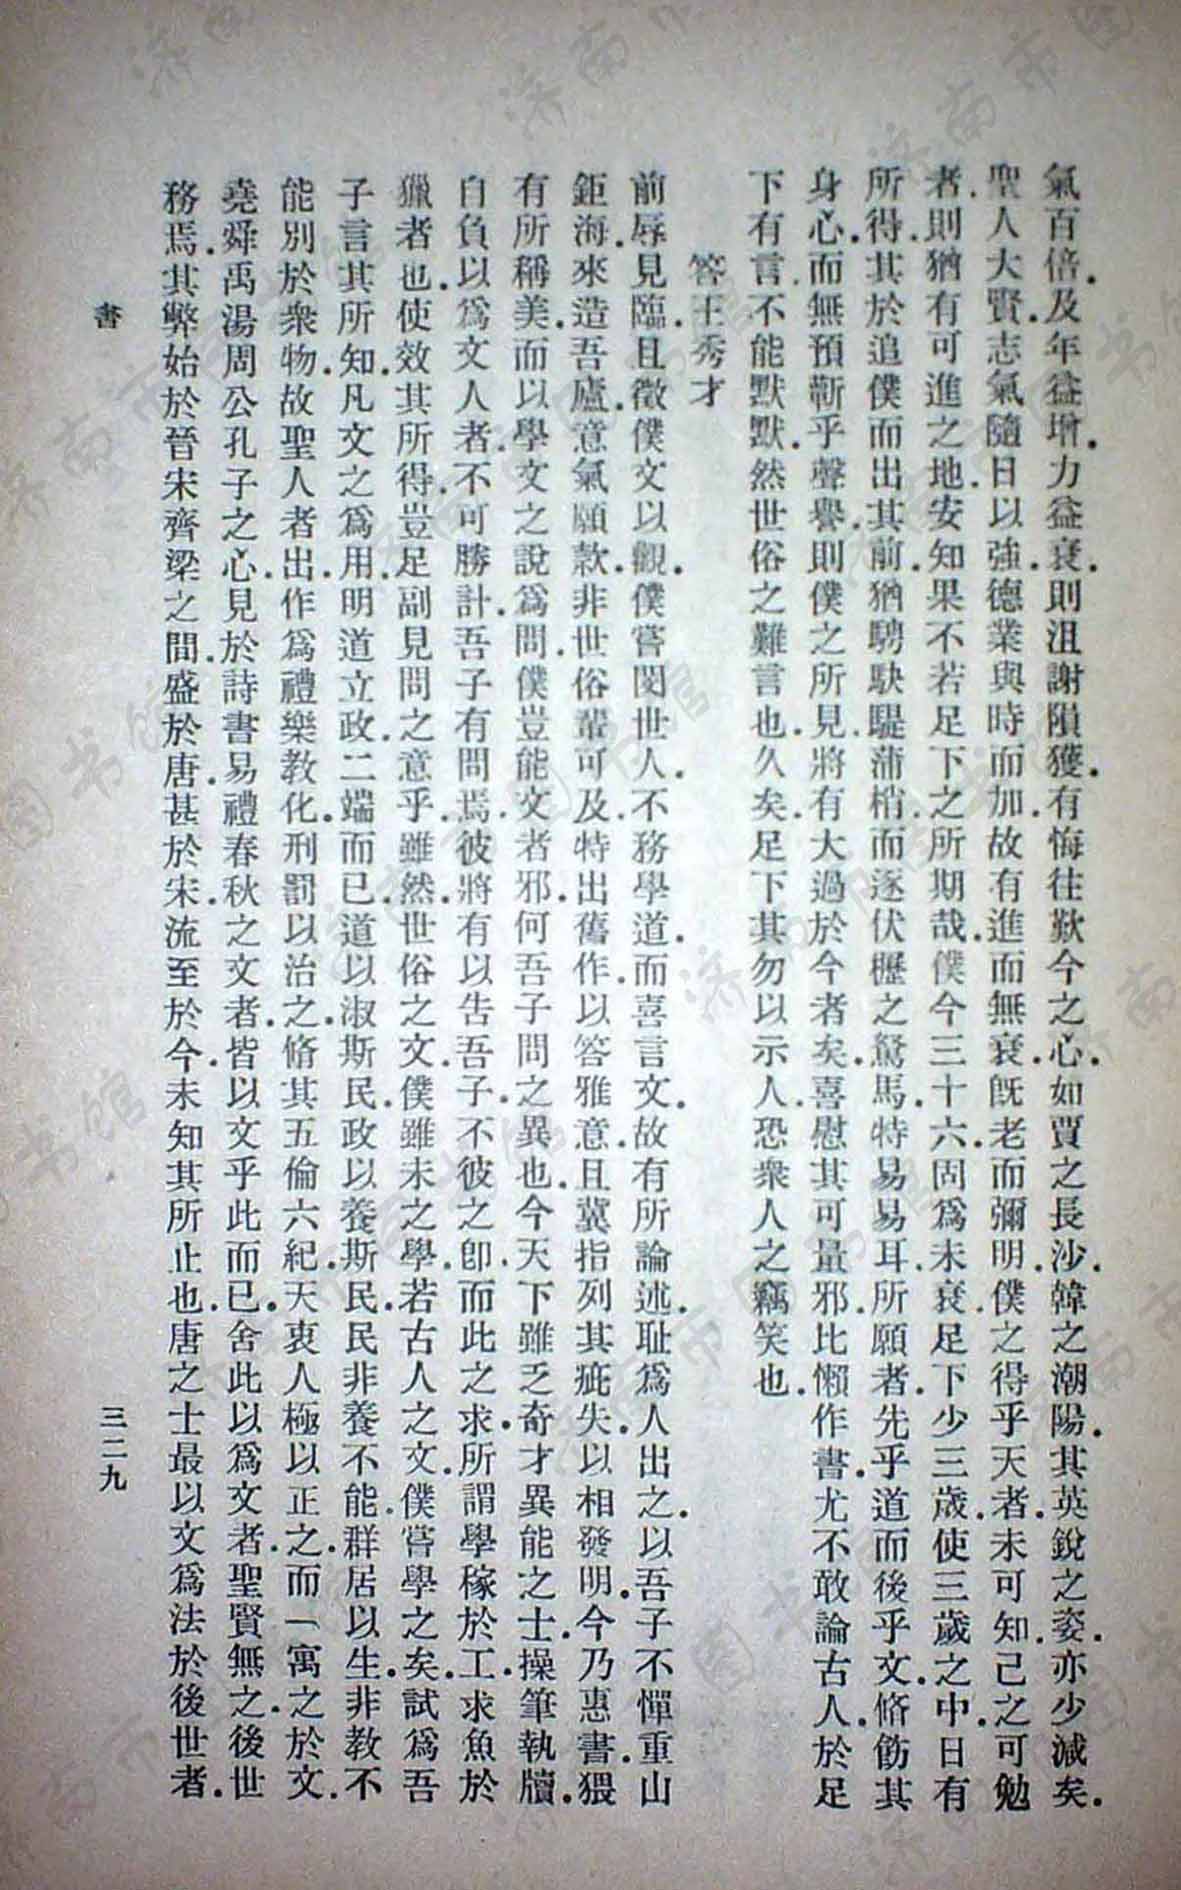 氣百倍.及年益增.力益衰.則沮謝隕獲.有悔往歎今之心.如賈之長沙.韓之潮陽.其英銳之姿.亦少減矣.
聖人大賢.志氣隨日以強.德業與時而加.故有進而無衰.既老而彌明.僕之得乎天者.未可知.己之可勉
者.則猶有可進之地.安知果不若足下之所期哉.僕今三十六.固爲未衰.足下少三歲.使三歲之中.日有
所得.其於追僕而出其前.猶騁駃騠蒲梢而逐伏櫪之駑馬.特易易耳.所願者.先乎道而後乎文.脩飭其
身心.而無預蘄乎聲譽.則僕之所見.將有大過於今者矣.喜慰其可量邪.比懶作書.尤不敢論古人.於足
下有言.不能默默.然世俗之難言也久矣.足下其勿以示人.恐衆人之竊笑也.
答王秀才
前辱見臨.且徵僕文以觀.僕嘗閔世人.不務學道.而喜言文.故有所論述.耻爲人出之.以吾子不憚重山
鉅海.來造吾廬.意氣願款.非世俗輩可及.特出舊作以答雅意.且冀指列其疵失.以相發明.今乃惠書.猥
有所稱美.而以學文之說爲問.僕豈能文者邪.何吾子問之異也.今天下雖乏奇才異能之士.操筆執牘.
自負以爲文人者.不可勝計.吾子有問焉.彼將有以告吾子.不彼之卽.而此之求.所謂學稼於工.求魚於
獵者也.使效其所得.豈足副見問之意乎.雖然.世俗之文.僕雖未之學.若古人之文.僕嘗學之矣.試爲吾
子言其所知.凡文之爲用.明道立政.二端而已.道以淑斯民.政以養斯民.民非養不能群居以生.非教不
能別於衆物.故聖人者出.作爲禮樂教化.刑罰以治之.脩其五倫六紀.天衷人極以正之.而一寓之於文.
堯舜禹湯周公孔子之心.見於詩書易禮春秋之文者.皆以文乎此而已.舍此以爲文者.聖賢無之.後世
務焉.其弊始於晉宋齊梁之間.盛於唐.甚於宋.流至於今.未知其所止也.唐之士最以文爲法於後世者.
書
三二九
濟南市图书馆